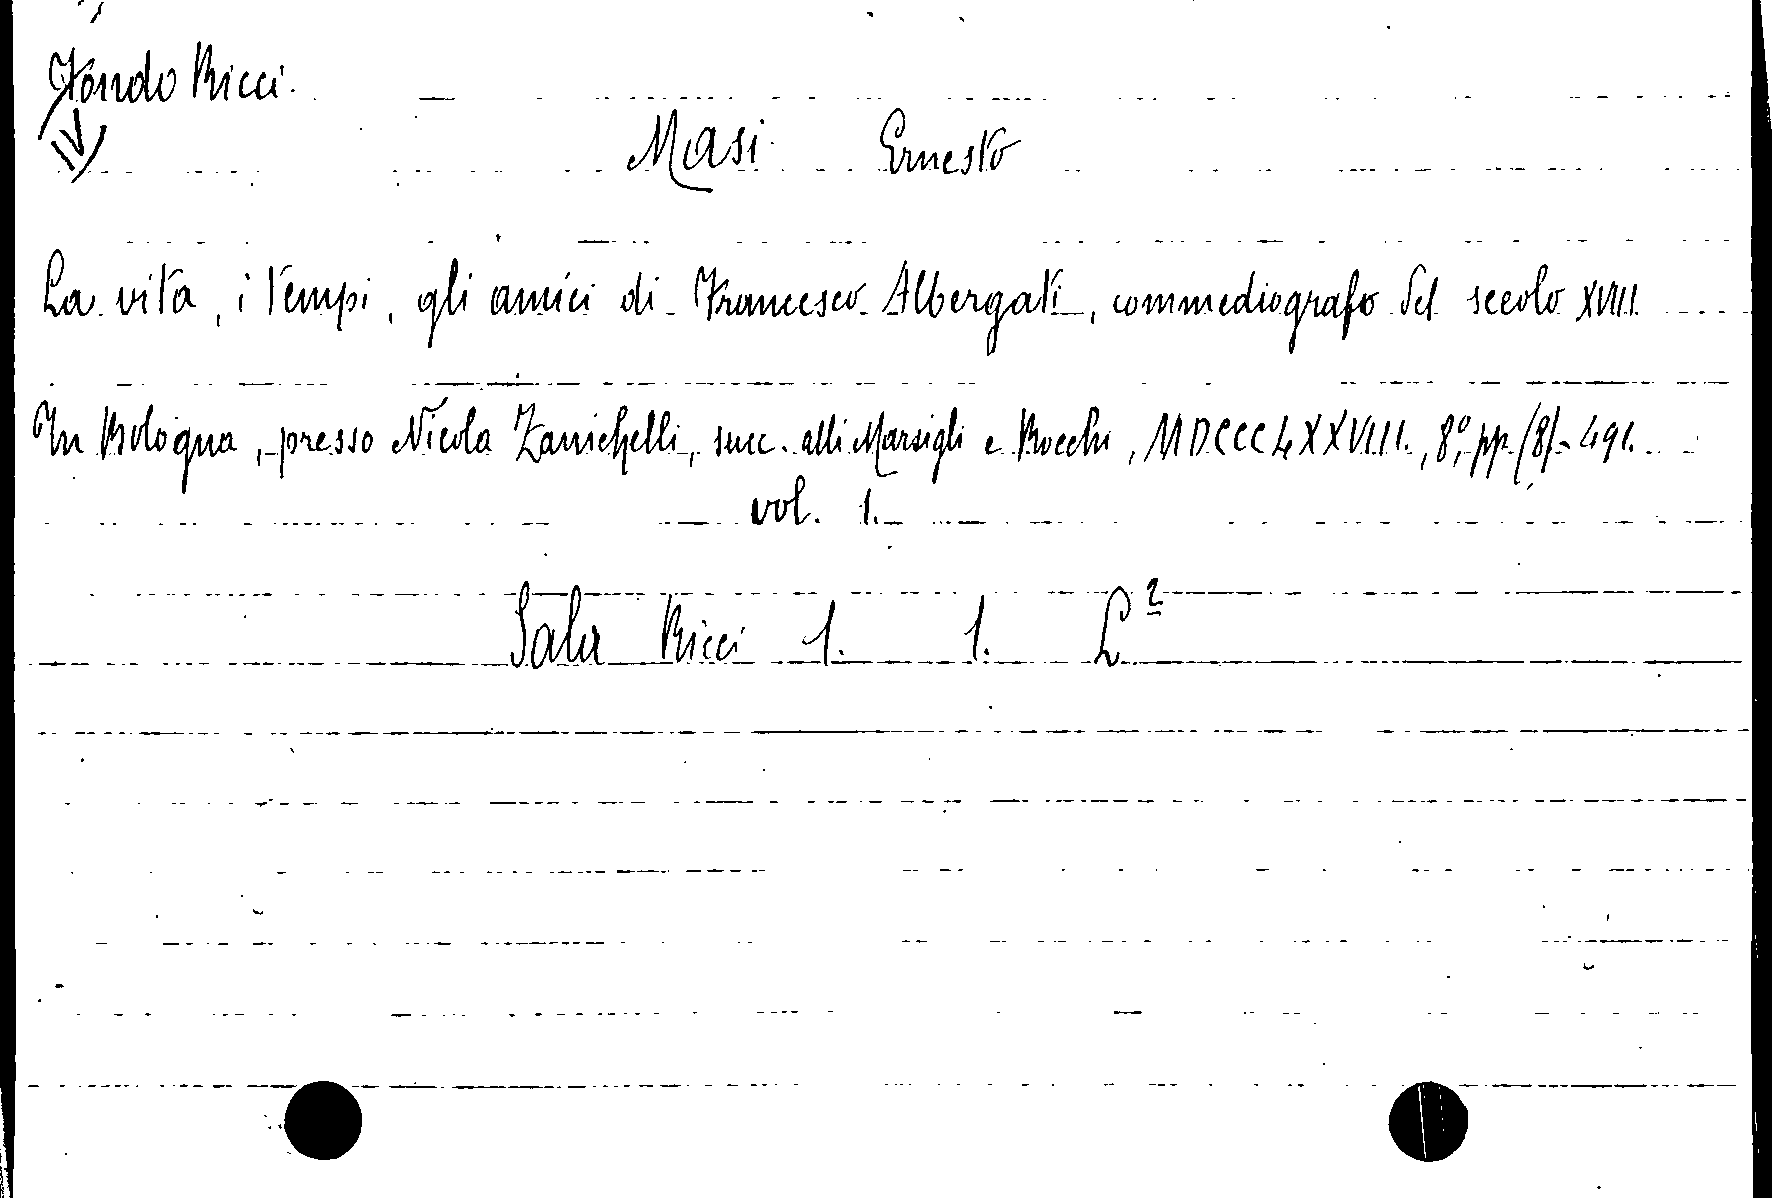 Fondo Ricci.
IV
Masi Ernesto
La vita, i tempi, gli amici di Francesco Albergati, commediografo del secolo XVIII
In Bologna, presso Nicola Zanichelli, succ. alli Marsigli e Rocchi, MDCCCLXXVIII., 8°, pp. (8)-491.
vol. 1.
Sala Ricci 1. 1. L²